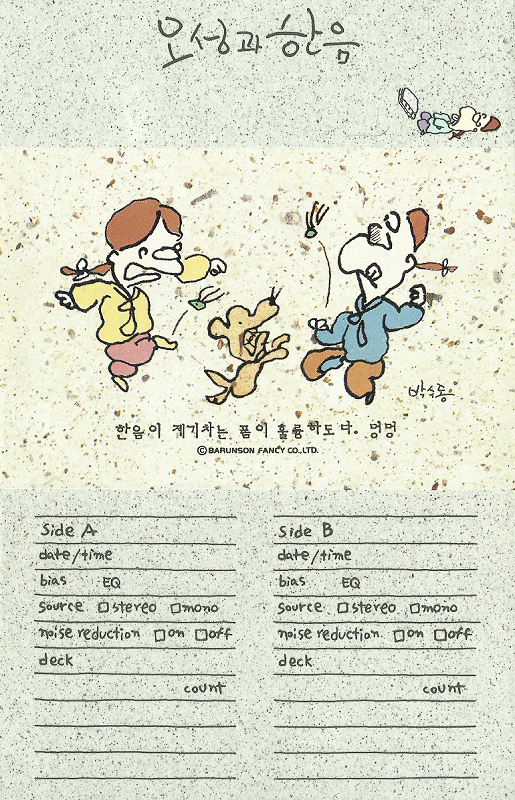 오성과 한음
박수동
한음이 제기차는 폼이 훌륭하도다. 멍멍
©BARUNSON FANCY CO.,LTD.
Side A
date/time
bias EQ
source □stereo □mono
noise reduction □on □off
deck
count
Side B
date/time
bias EQ
source □stereo □mono
noise reduction. □on □off
deck
count